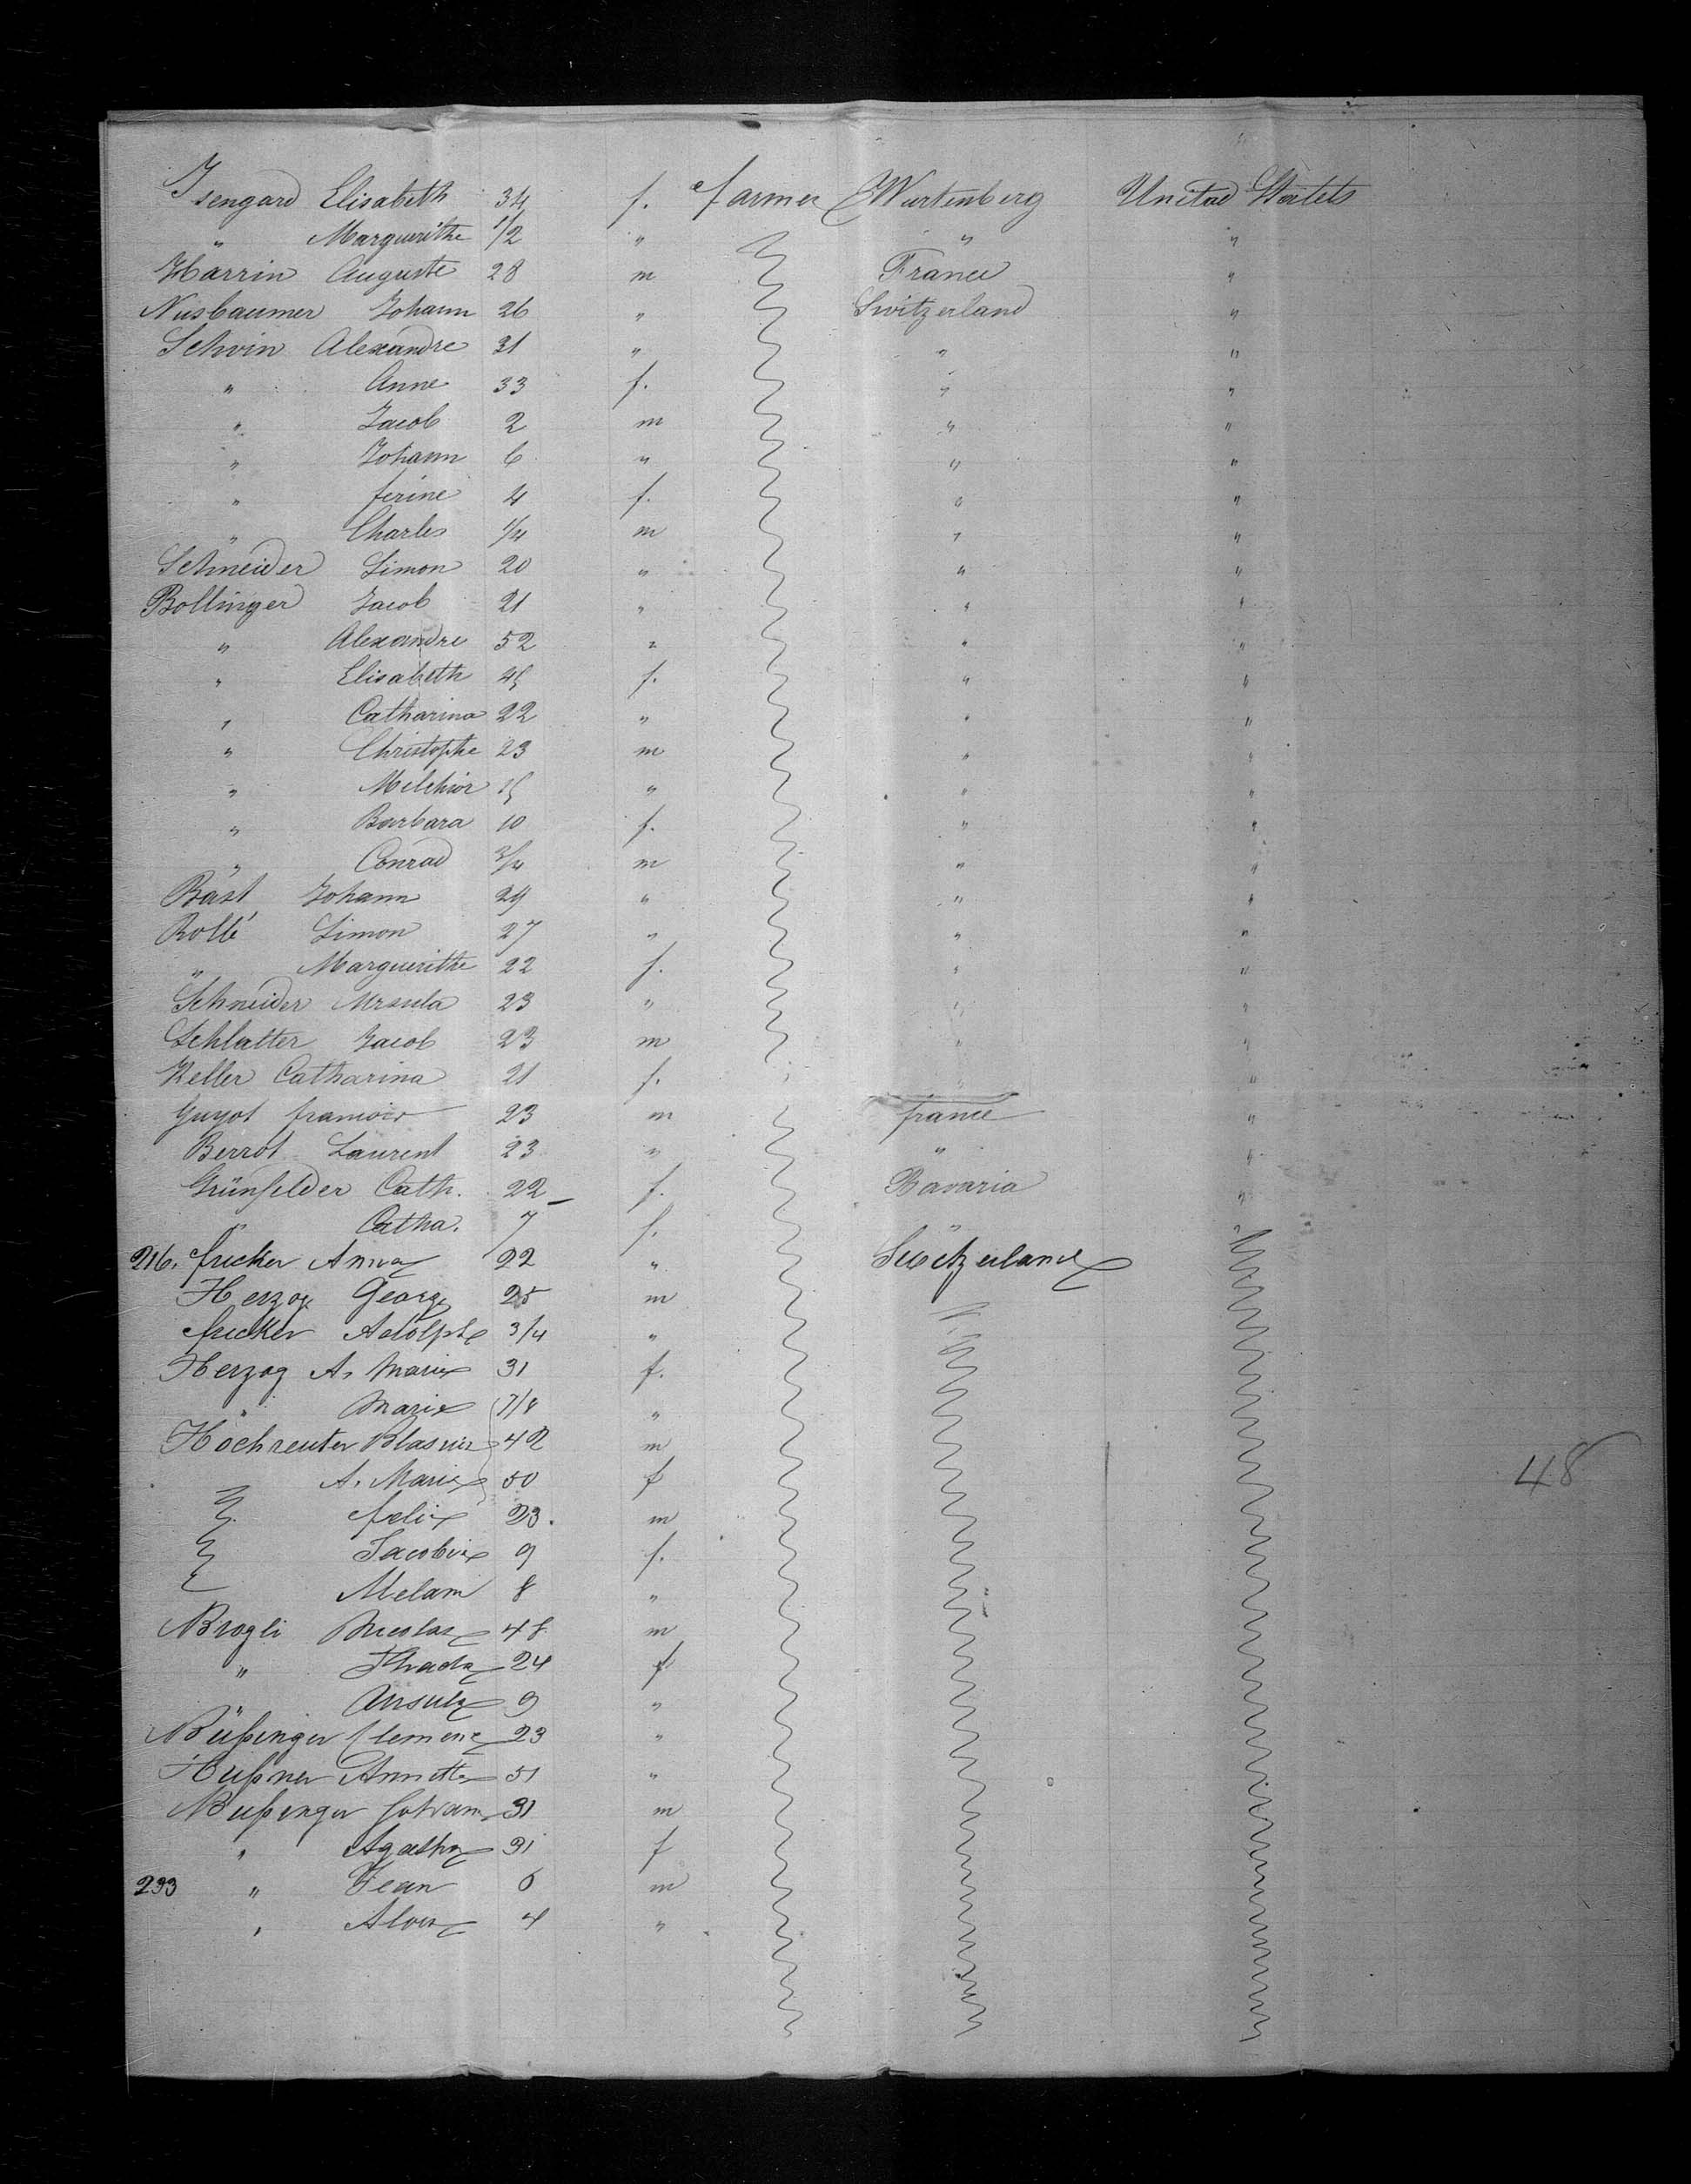 Isengard Elisabeth 34 f. farmer Wurtenberg Unitad Statets
" Marguerithe 1/2 " " "
Harrin Auguste 28 m France "
Nusbaumer Johann 26 " Switzerland "
Schvin Alexandre 31 " " "
" Anne 33 f. " "
" Jacob 2 m " "
" Johann 6 " " "
" ferine 4 f. " "
" Charles 1/4 m " "
Schneider Simon 20 " " "
Bollinger Jacob 21 " " "
" Alexandre 52 " " "
" Elisabeth 45 f. " "
" Catharina 22 " " "
" Christophe 23 m " "
" Melchior 15 " " "
" Barbara 10 f. " "
" Conrad 3/4 m " "
Bäst Johann 29 " " "
Rollé Simon 27 " " "
" Marguerithe 22 f. " "
Schneider Ursula 23 " " "
Schlatter Jacob 23 m " "
Keller Catharina 21 f. " "
Guyot francois 23 m france "
Berrot Laurent 23 " " "
Grünfelder Cath. 22 f. Bavaria "
" Catha. 7 f. " "
216. fricker Anna 22 " Switzerland
Herzog George 25 m
fricker Adolphe 3/4 "
Herzog A. Marie 31 f.
" Marie 7/8 "
Hochreuter 42 m
A. Marie 50 f
felix 23. m
Jacobine 9 f.
Melani 8 "
Brogli Nicolas 48 m
" 24 f
" Ursula 9 "
Büßinger Clemenz 23 "
Hußner Annette 51 "
Bußinger Johann 31 m
" Agatha 31 f
48
233 " Jean 6 m
" Alois 4 "